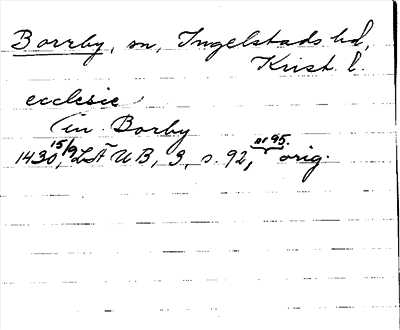 Borrby, sn, Ingelstads hd,
Krist. l.
ecclesie
in Borby
1430 15/9, LÄUB, 3, s. 92, nr 95. orig.